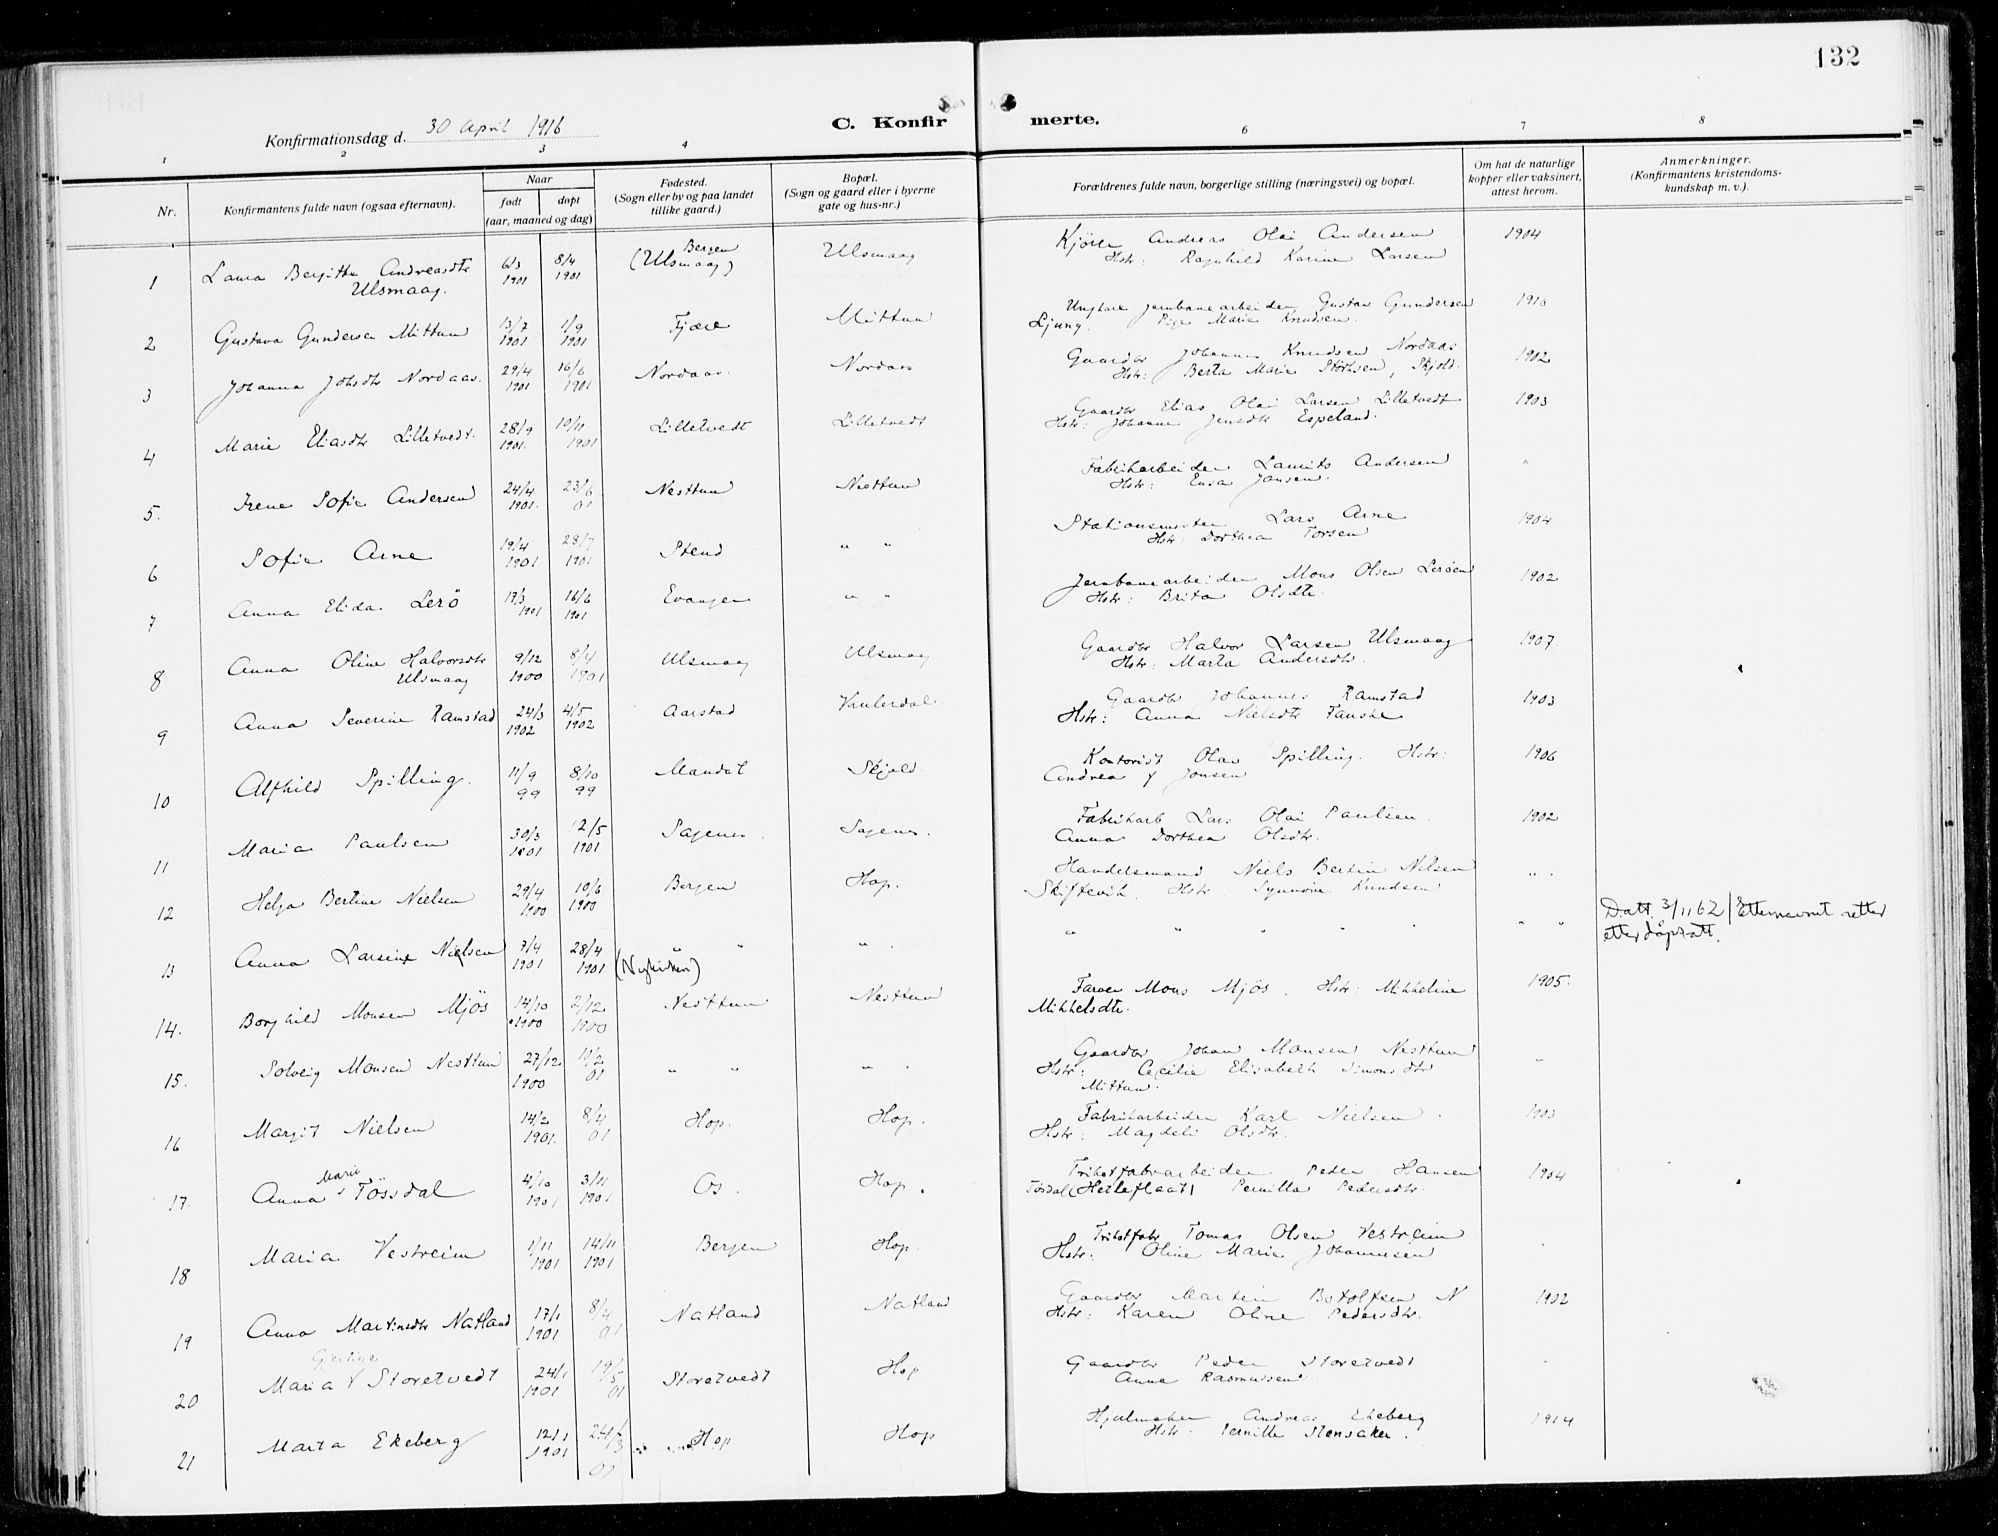 132
Konfirmationsdag d. 30 April 1916
C. Konfir merte.
1 2 3 4 6 7 8
Nr.
Konfirmantens fulde navn (ogsaa efternavn).
Naar
født døpt
(aar, maaned og dag)
Fødested.
(Sogn eller by og paa landet
tillike gaard.)
Bopæl.
(Sogn og gaard eller i byerne
gate og hus-nr.)
Forældrenes fulde navn, borgerlige stilling (næringsvei) og bopæl.
Om hat de naturlige
kopper eller vaksinert,
attest herom.
Anmerkninger.
(Konfirmantens kristendoms-
kundskap m. v.).
1 Laura Bergitte Andreasdtr 6/3 8/4 Bergen Ulsmaag Kjörer Andreas Olai Andersen 1904
Ulsmaag. 1901 1901 (Ulsmaag) Hstr: Ragnhild Karine Larsen
2 Gustava Gundersen Mittun 13/7 1/9 Fjære Mittun Ungkare Jernbanearbeider Gustav Gundersen 1910
1901 1901 Ljung. Pige Marie Knudsen.
3 Johanna Johsdtr Nordaas. 29/4 16/6 Nordaas. Nordaas Gaardbr Johannes Knudsen Nordaas 1902
1901 1901 Hstr: Berta Marie Skjold.
4 Marie Eliasdtr Lilletvedt. 28/9 10/11 Lilletvedt Lilletvedt Gaardbr Elias Olai Larsen Lilletvedt 1903
1901. 1901 Hstr: Johanne Jensdtr Espeland.
5. Irene Sofie Andersen 24/4 23/6 Nesttun Nesttun Fabrikarbeider Laurits Andersen "
1901. 01 Hstr: Jansen.
6 Sofie Arne 19/4 28/7 Stend " " Stationsmester Lars Arne 1904
1901 1901 Hstr: Dorthea Torsen
7 Anna Elida Lerö 17/3 16/6 Evanger " " Jernbanearbeider Mons Olsen Leröen 1902
1901 1901 Hstr: Brita Olsdtr.
8 Anna Oline Halvorsdtr 9/12 8/4 Ulsmaag Ulsmaag Gaardbr Halvor Larsen Ulsmaag 1907.
Ulsmaag 1900 1901 Hstr: Marta Andersdtr.
9 Anna Severine Ramstad 24/3 4/5 Aarstad Gaardbr Johannes Ramstad 1903
1902 1902 Hstr: Anna Nielsdtr Fanske
10 Alfhild Spilling. 11/9 8/10 Mandal Skjold. Kontorist Olav Spilling. Hstr: 1906
99 99 Andrea f Jonsen
11 Maria Paulsen 30/3 12/5 Sagenes. Sagenes. Fabrikarb Lars Olai Paulsen. 1902
1901 1901 Anna Dorthea Olsdtr.
12 Helga Bertine Nielsen 29/4 10/6 Bergen Hop. Handelsmand Niels Bertin Nilsen " .
1900 1900 Skiftevik. Hstr Synnöve Knudsen
13 Anna Larsine Nielsen 7/4 28/4 " " " . " " " " " " " D.att. 3/11 62 / Etternavnet rettet
1901 1901 (Nykirken) etter dåpsatt.
14. Borghild Monsen Mjös 14/10 2/12 Nesttun Nesttun Farver Mons Mjös. Hstr: Mikkeline 1905.
1900 1900 Mikkelsdtr.
15. Solveig Monsen Nesttun 27/12 10/2 " " " . Gaardbr Johan Monsen Nesttun "
1900 01 Hstr: Cecilie Elisabeth Simonsdtr
Mittun.
16 Margit Nielsen 14/2 8/4 Hop. Hop. Fabrikarbeider Karl Nielsen. 1903
1901. 01 Hstr: Magdeli Olsdtr.
17. Anna Marie Tössdal 4/10 3/11 Os. Hop. Trikotfabarbeider Peder Hansen 1904
1901 1901 Tösdal (Hetleflaat) Pernilla Pedersdtr.
18 Maria Vestreim 1/11 14/11 Bergen Hop. Trikotfabr Tomas Olsen Vestreim
1901 1901 Hstr: Oline Marie Johannesen
19 Anna Martinsdtr Natland 17/1 8/4 Natland Natland Gaardbr Martin Botolfsen N 1902
1901 01 Hstr: Karen Oline Pedersdtr.
20 Maria Gjertine Storetvedt 24/1 19/5 Storetvedt Hop Gaardbr Peder Storetvedt
1901 01 Anne Rasmussen
21 Marta Ekeberg 12/1 24/3 Hop Hop Hjulmaker Andreas Ekeberg 1914
1901 01 Hstr. Pernille Stensaker.